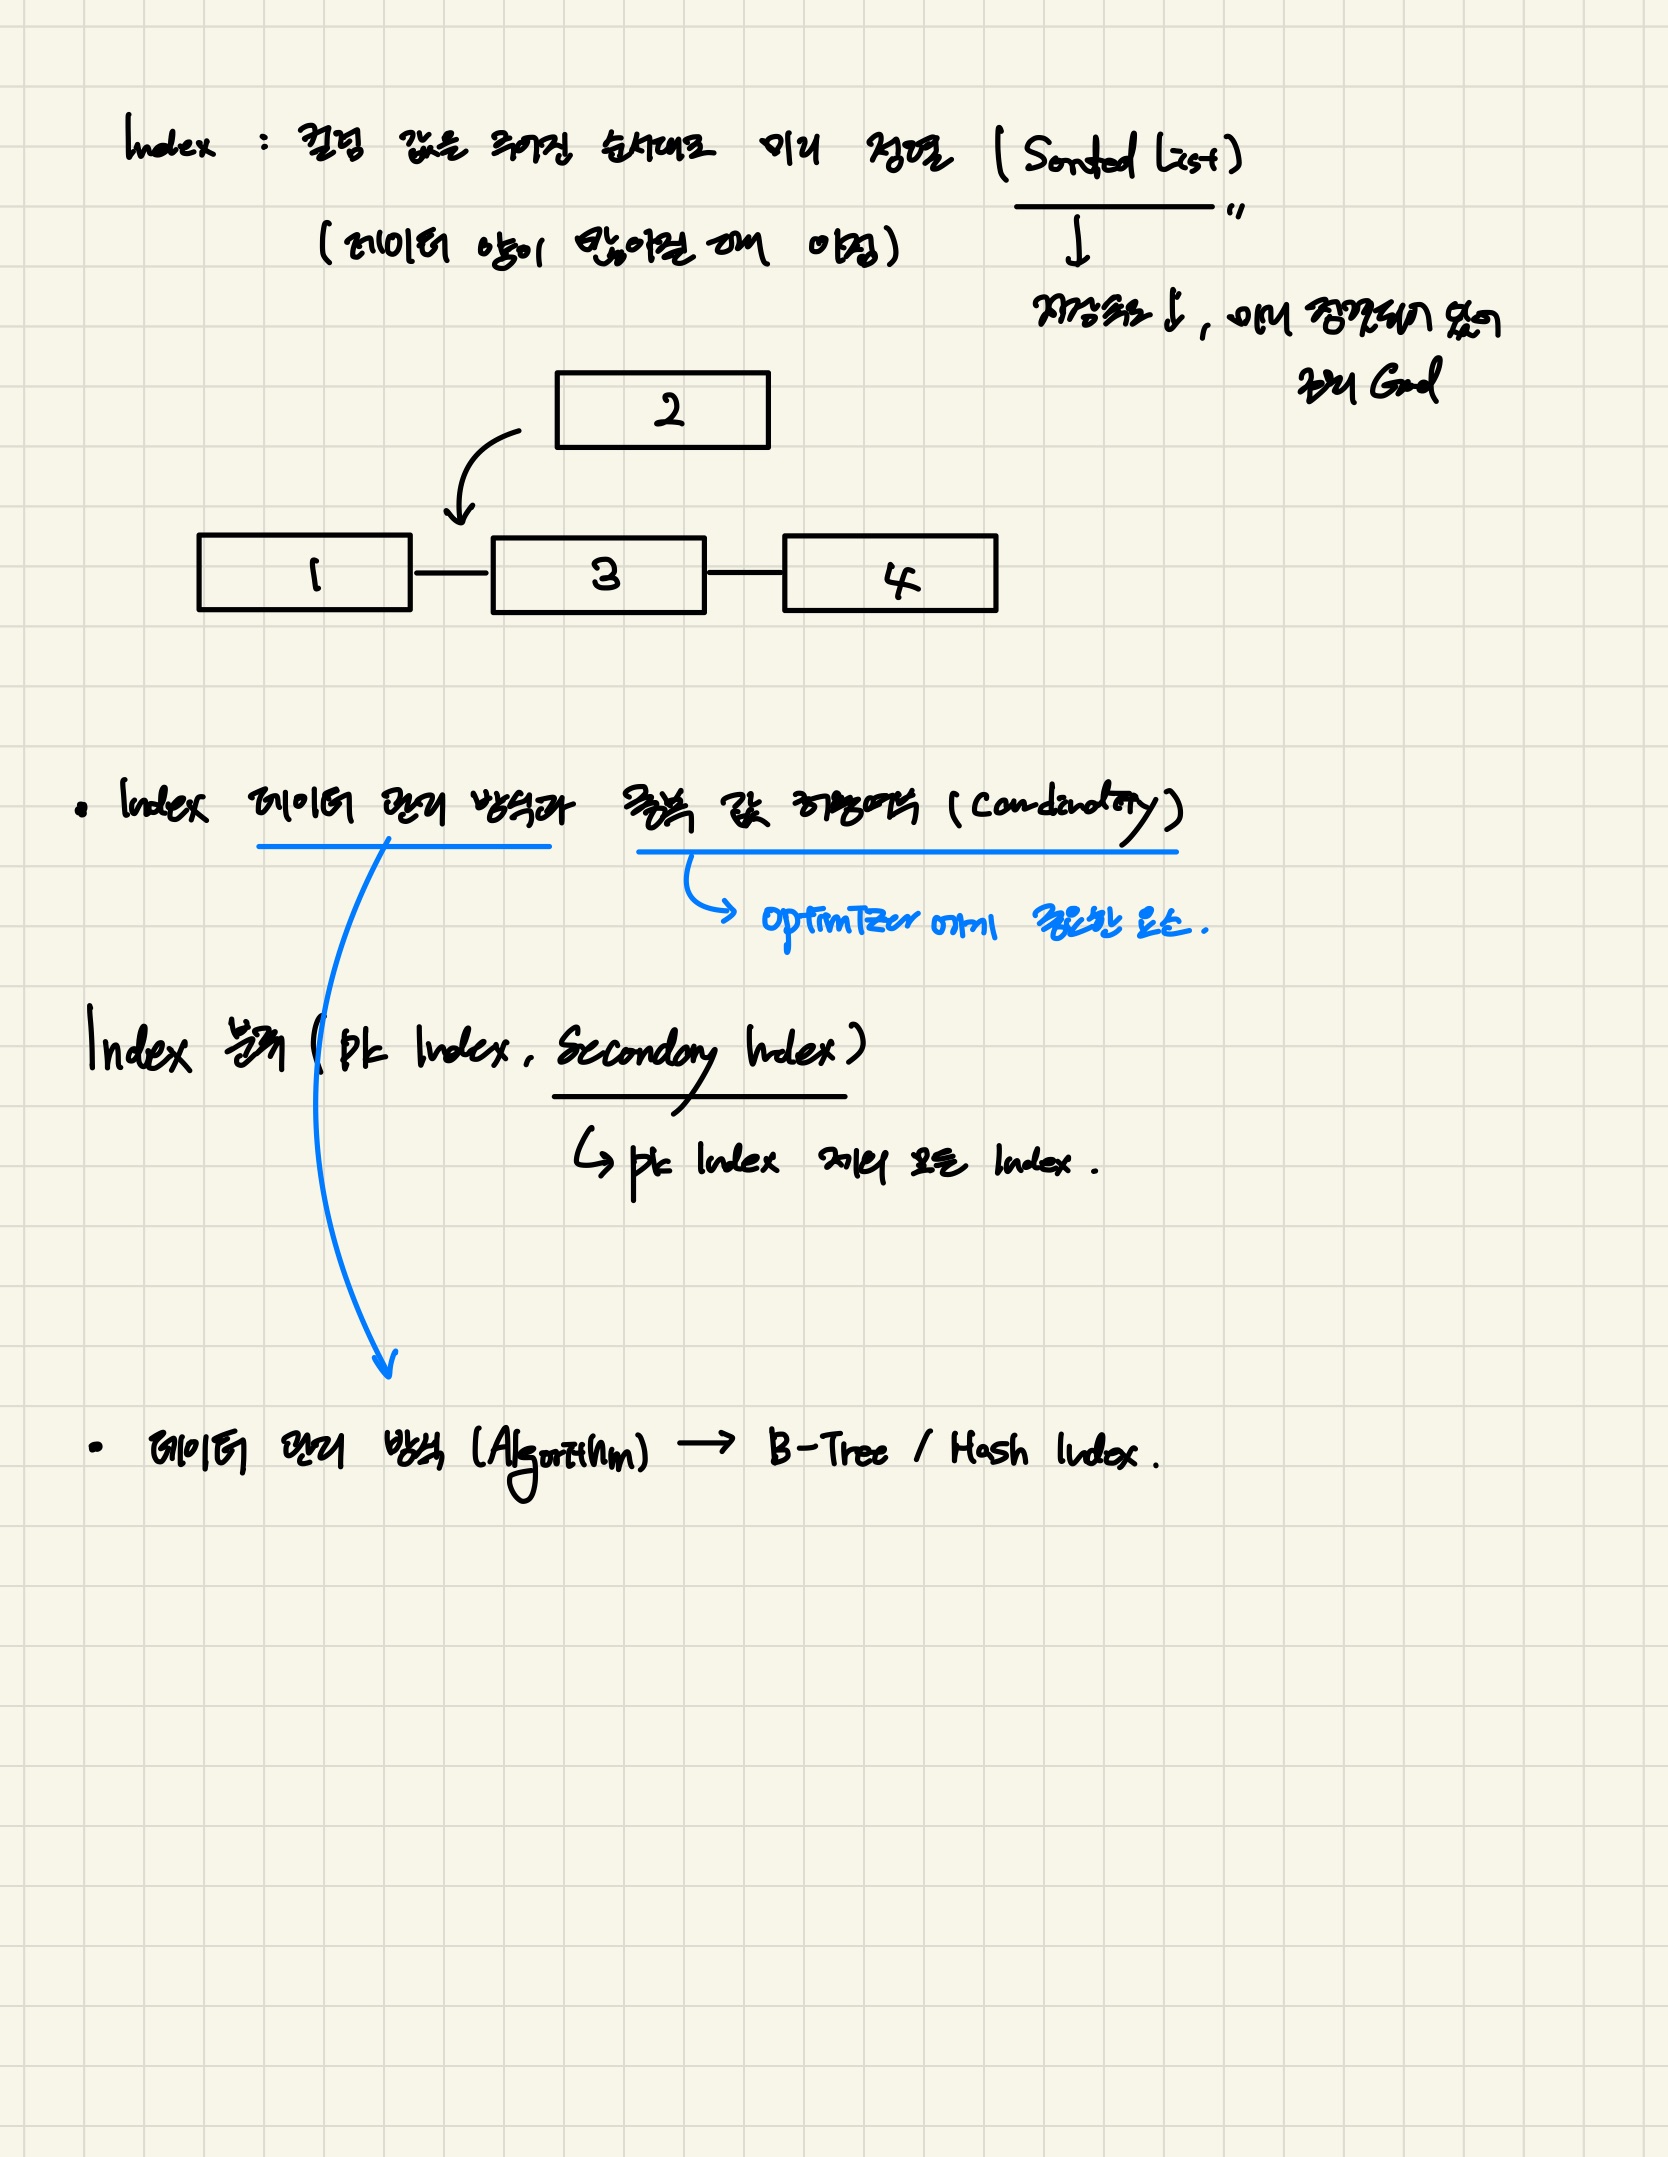 Index : 컬럼 값을 주어진 순서대로 미리 정렬 (Sorted List)"
(데이터 양이 많아질 때 이점)
저장속도↓, 미리 정렬되어 있어
쿼리 Good
2
1 3 4
• Index 데이터 관리 방식과 중복 값 허용여부 (Cardinality)
optimizer 에게 중요한 요소.
Index 분류 (pk Index, Secondary Index)
pk Index 제외 모든 Index.
• 데이터 관리 방식 (Algorithm) → B-Tree / Hash Index.